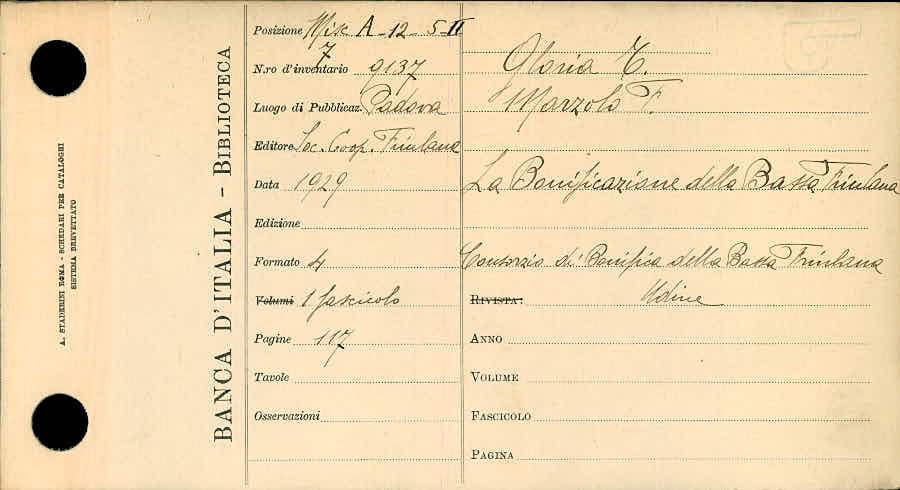 A. STADERINI ROMA - SCHEDARI PER CATALOGHI
SISTEMA BREVETTATO
BANCA D'ITALIA - BIBLIOTECA
Posizione Misc A-12-5-II
7
N.ro d'inventario 9137
Luogo di Pubblicaz. Padova
Editore Soc. Coop. Friulana
Data 1929
Edizione
Formato 4
Volumi 1 fascicolo
Pagine 117
Tavole
Osservazioni
Gloria T.
Marzolo F.
La Bonificazione della Bassa Friulana
Consorzio di Bonifica della Bassa Friulana
RIVISTA: Udine
ANNO
VOLUME
FASCICOLO
PAGINA